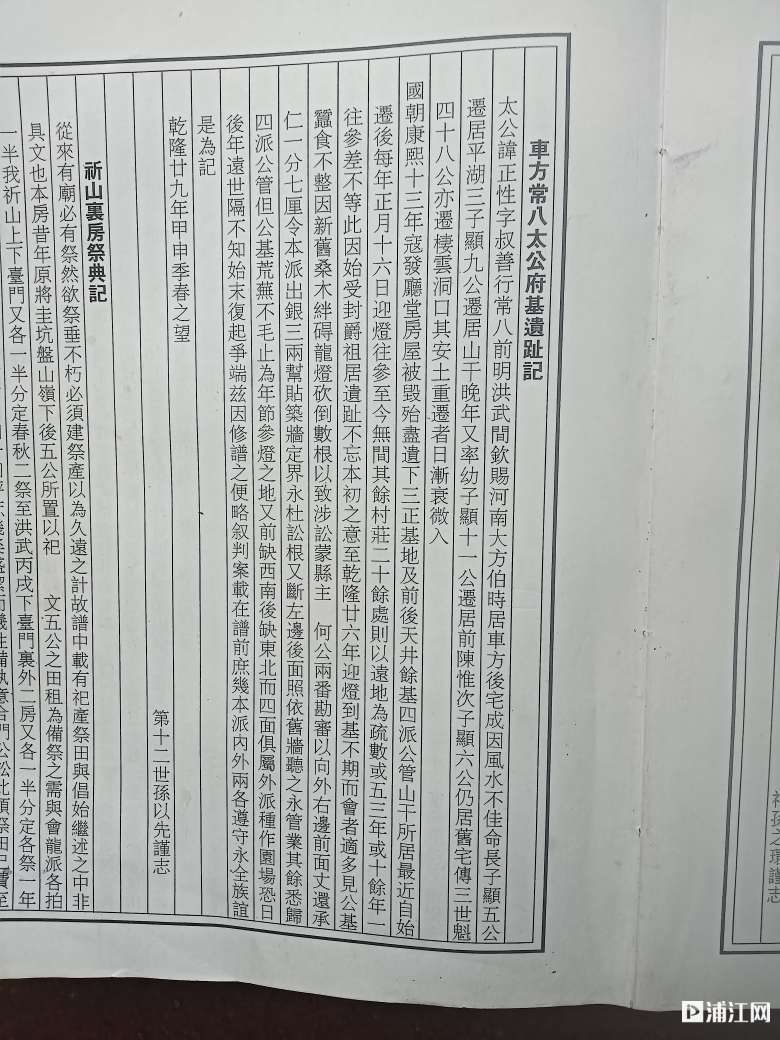 車方常八太公府基遺趾記
太公諱正性字叔善行常八前明洪武間欽賜河南大方伯時居車方後宅成因風水不佳命長子顯五公
遷居平湖三子顯九公遷居山干晚年又率幼子顯十一公遷居前陳惟次子顯六公仍居舊宅傳三世魁
四十八公亦遷棲雲洞口其安土重遷者日漸衰微入
國朝康熙十三年寇發廳堂房屋被毀殆盡遺下三正基地及前後天井餘基四派公管山干所居最近自始
遷後每年正月十六日迎燈往參至今無間其餘村莊二十餘處則以遠地為疏數或五三年或十餘年一
往參差不等此因始受封爵祖居遺趾不忘本初之意至乾隆廿六年迎燈到基不期而會者適多見公基
蠶食不整因新舊桑木絆碍龍燈砍倒數根以致涉訟蒙縣主 何公兩番勘審以向外右邊前面丈還承
仁一分七厘令本派出銀三兩幫貼築牆定界永杜訟根又斷左邊後面照依舊牆聽之永管業其餘悉歸
四派公管但公基荒蕪不毛止為年節參燈之地又前缺西南後缺東北而四面俱屬外派種作園場恐日
後年遠世隔不知始末復起爭端茲因修譜之便略叙判案載在譜前庶幾本派內外兩各遵守永全族誼
是為記
乾隆廿九年甲申季春之望
第十二世孫以先謹志
祈山裏房祭典記
從來有廟必有祭然欲祭垂不朽必須建祭產以為久遠之計故譜中載有祀產祭田與倡始繼述之中非
具文也本房昔年原將圭坑盤山嶺下後五公所置以祀 文五公之田租為備祭之需與會龍派各拍
一半我祈山上下臺門又各一半分定春秋二祭至洪武丙戌下臺門裏外二房又各一半分定各祭一年
孫之環謹志
浦江网